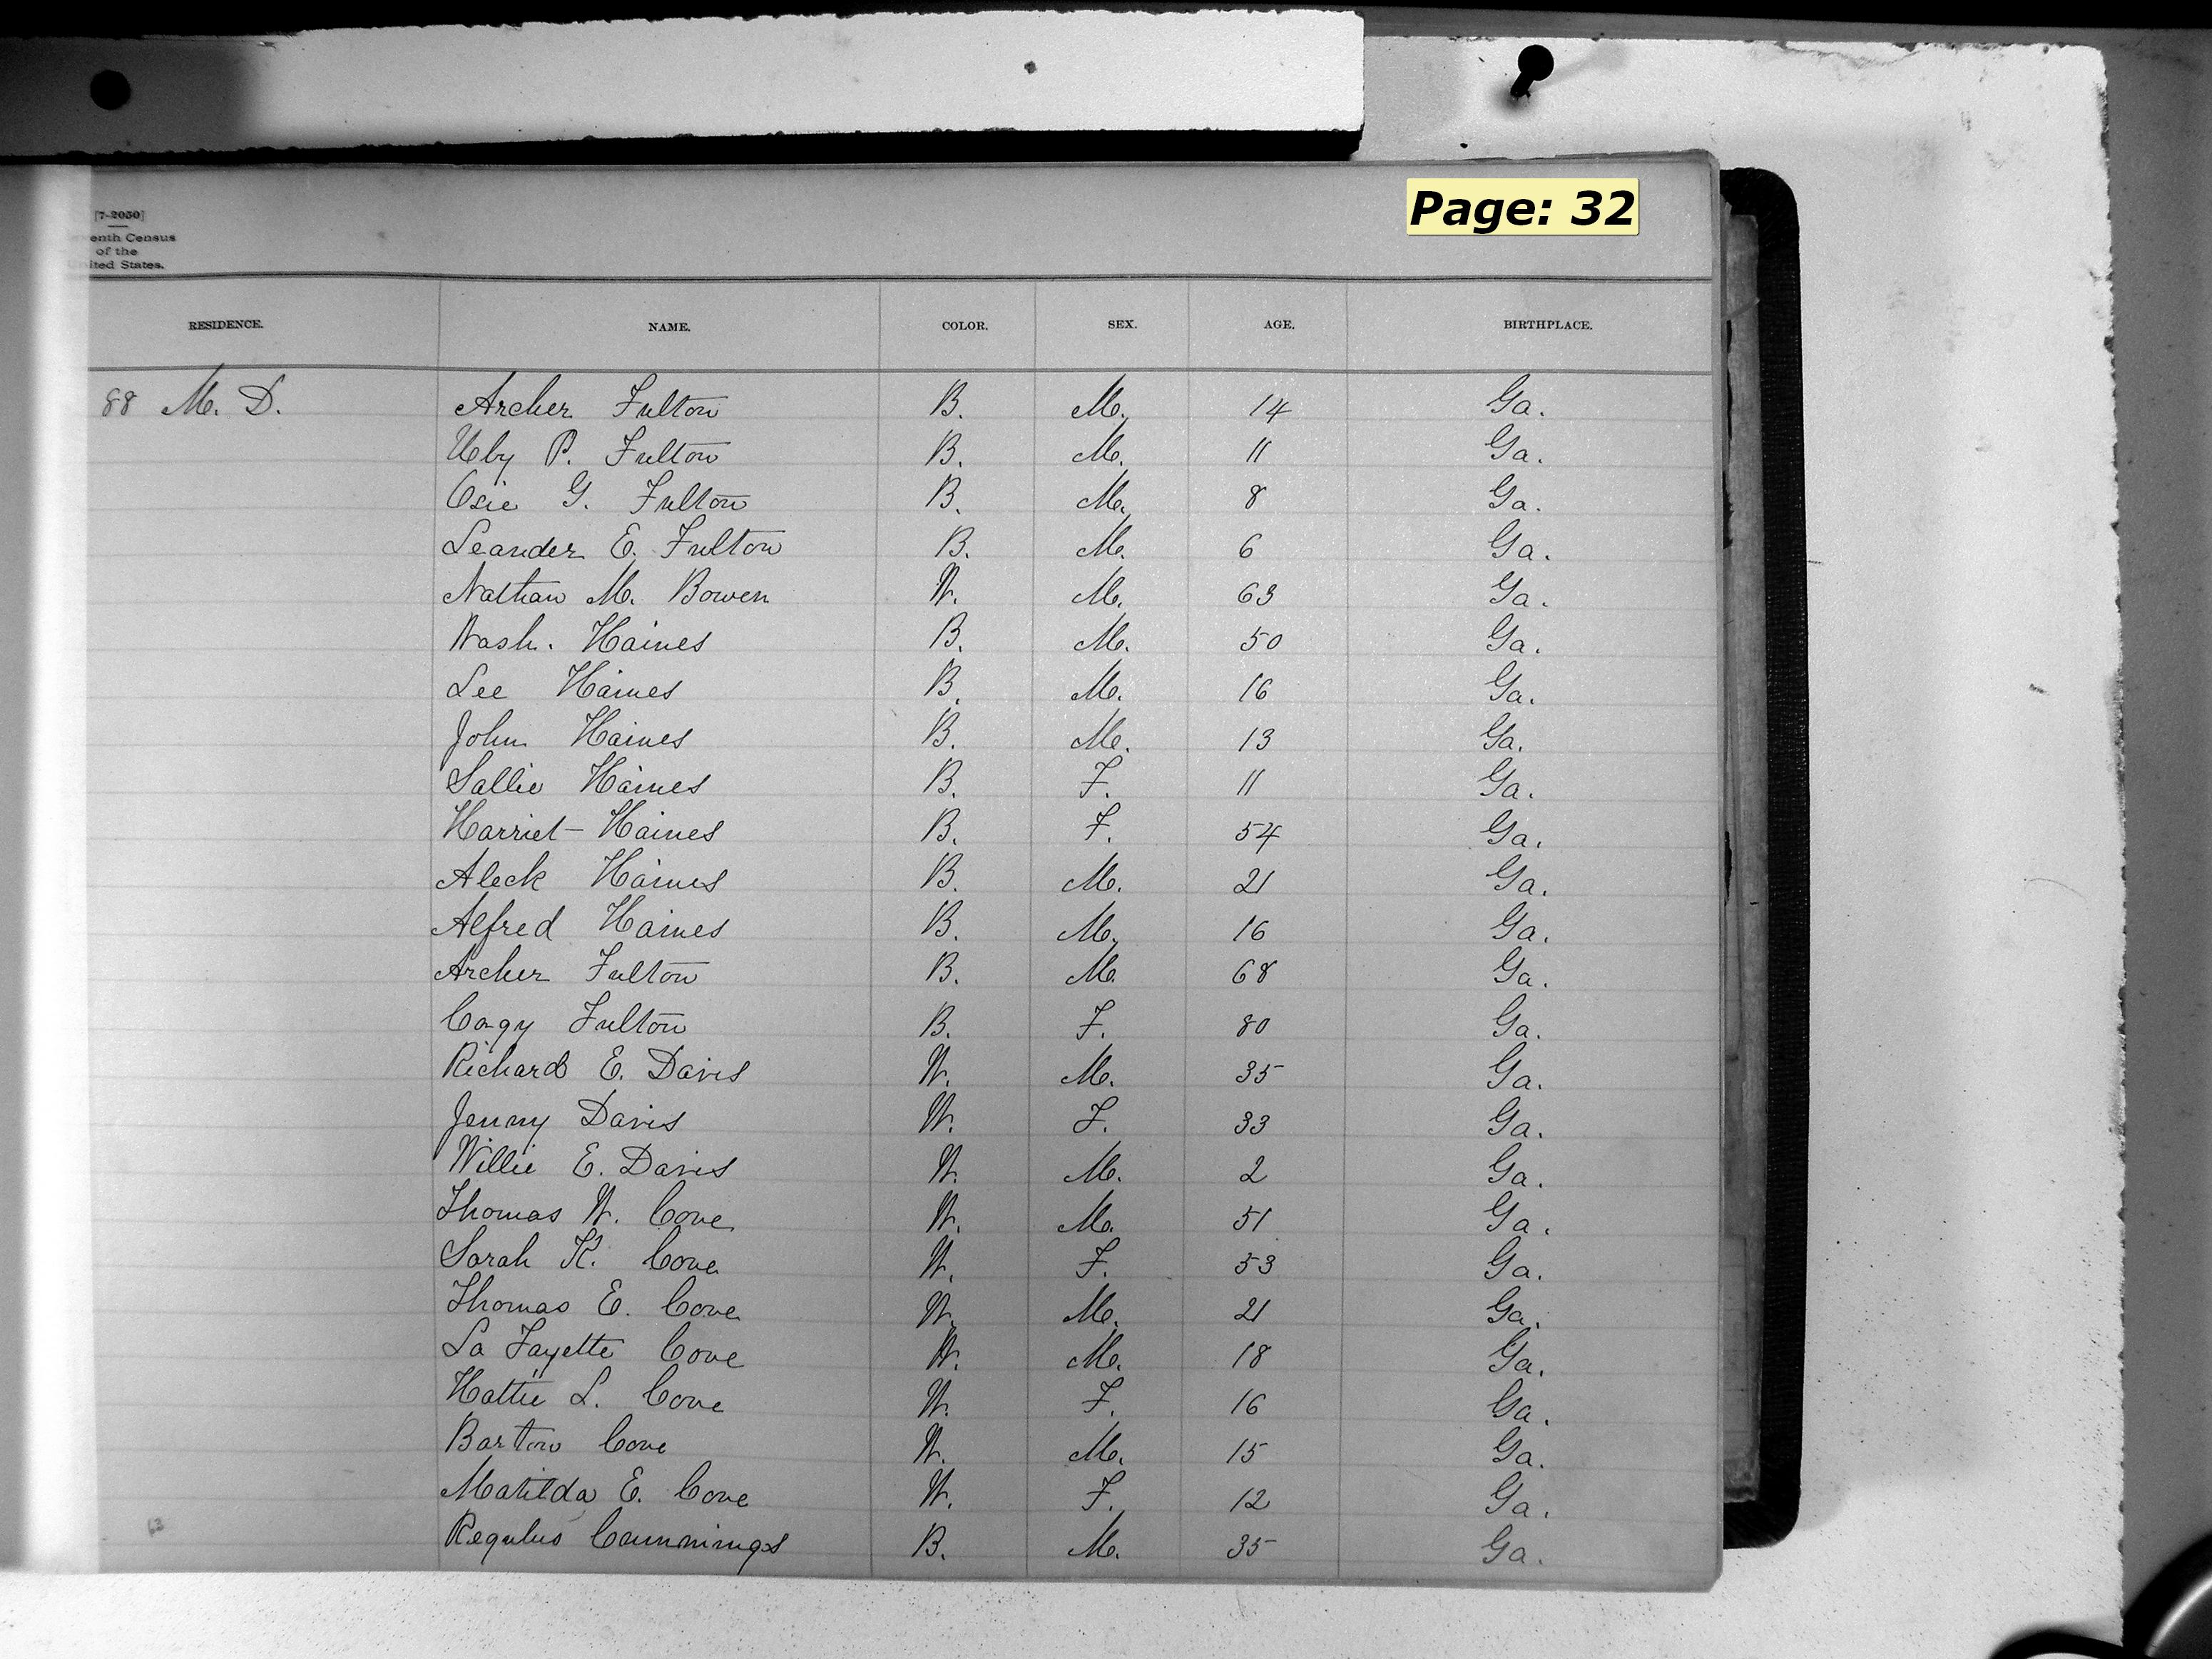 Page: 32
[7-2050]
enth Census
of the
ited States.
RESIDENCE. NAME. COLOR. SEX. AGE. BIRTHPLACE.
88 M. D. Archer Fulton B. M. 14 Ga.
Uby P. Fulton B. M. 11 Ga.
Osie G. Fulton B. M. 8 Ga.
Leander E. Fulton B. M. 6 Ga.
Nathan M. Bowen W. M. 63 Ga.
Wash. Haines B. M. 50 Ga.
Lee Haines B. M. 16 Ga.
John Haines B. M. 13 Ga.
Sallie Haines B. F. 11 Ga.
Harriet Haines B. F. 54 Ga.
Aleck Haines B. M. 21 Ga.
Alfred Haines B. M. 16 Ga.
Archer Fulton B. M. 68 Ga.
Cagy Fulton B. F. 80 Ga.
Richard E. Davis W. M. 35 Ga.
Jenny Davis W. F. 33 Ga.
Willie E. Davis W. M. 2 Ga.
Thomas W. Cone W. M. 51 Ga.
Sarah K. Cone W. F. 53 Ga.
Thomas E. Cone W. M. 21 Ga.
La Fayette Cone W. M. 18 Ga.
Hattie L. Cone W. F. 16 Ga.
Barton Cone W. M. 15 Ga.
Matilda E. Cone W. F. 12 Ga.
Regulus Cummings B. M. 35 Ga.